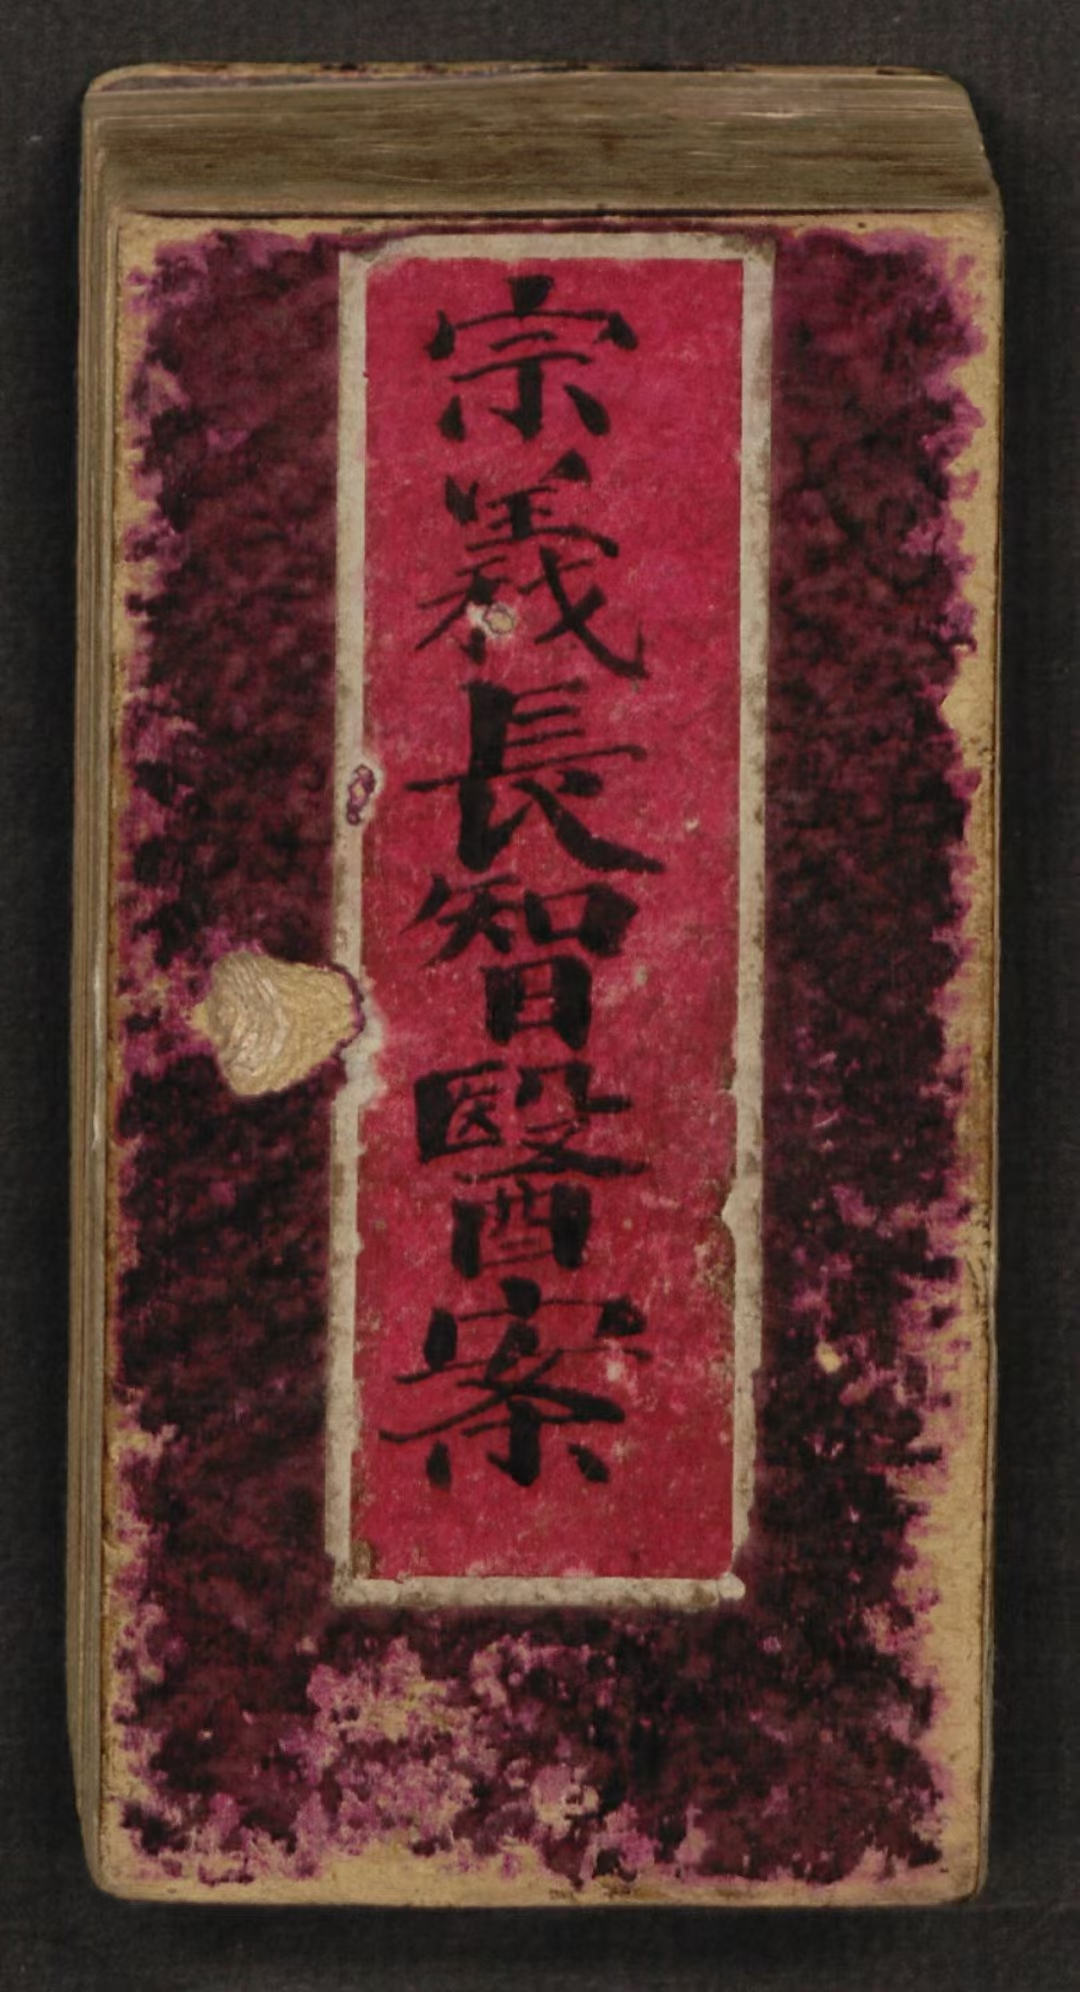 宗義長智醫案